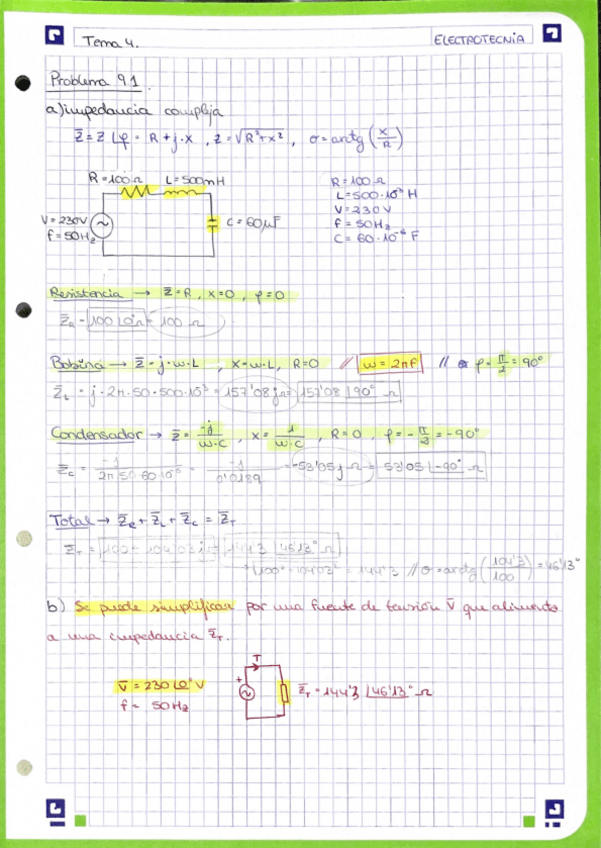 Tema 4.
ELECTROTECNIA
Problema 9.1
a) impedancia compleja
Z̄ = Z∠φ = R + j·X , Z = √R²+X² , σ = arctg (X/R)
R = 100Ω L = 500mH
V = 230V
f = 50Hz
C = 60µF
R = 100Ω
L = 500·10⁻³ H
V = 230V
f = 50Hz
C = 60·10⁻⁶ F
Resistencia → Z̄ = R , X=0 , φ=0
Z̄R = 100∠0°Ω = 100 Ω
Bobina → Z̄ = j·w·L , X=w·L, R=0 // w = 2πf // φ = π/2 = 90°
Z̄L = j·2π·50·500·10⁻³ = 157'08 jΩ = 157'08∠90° Ω
Condensador → Z̄ = -j/w·C , X = 1/w·C , R=0 , φ = -π/2 = -90°
Z̄C = -j/2π·50·60·10⁻⁶ = -j/0'0189 = -53'05j Ω = 53'05∠-90° Ω
Total → Z̄R + Z̄L + Z̄C = Z̄T
Z̄T = 100 + 104'03jΩ = 144'3∠46'13° Ω
√100² + 104'03² = 144'3 // σ = arctg (104'3/100) = 46'13°
b) Se puede simplificar por una fuente de tensión V̄ que alimenta
a una impedancia Z̄T.
V̄ = 230∠0° V
f = 50Hz
I
+
Z̄T = 144'3∠46'13° Ω